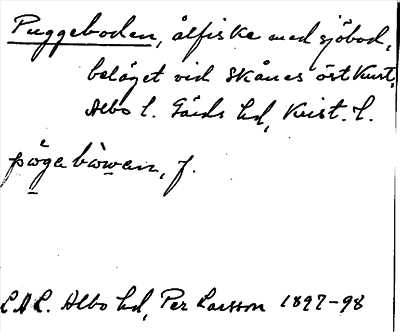 Puggeboden, ålfiske med sjöbod,
beläget vid Skånes östkust,
Albo l. Gärds hd, Krist. l.
pögabòwan, f.
LAL. Albo hd, Per Larsson 1897-98